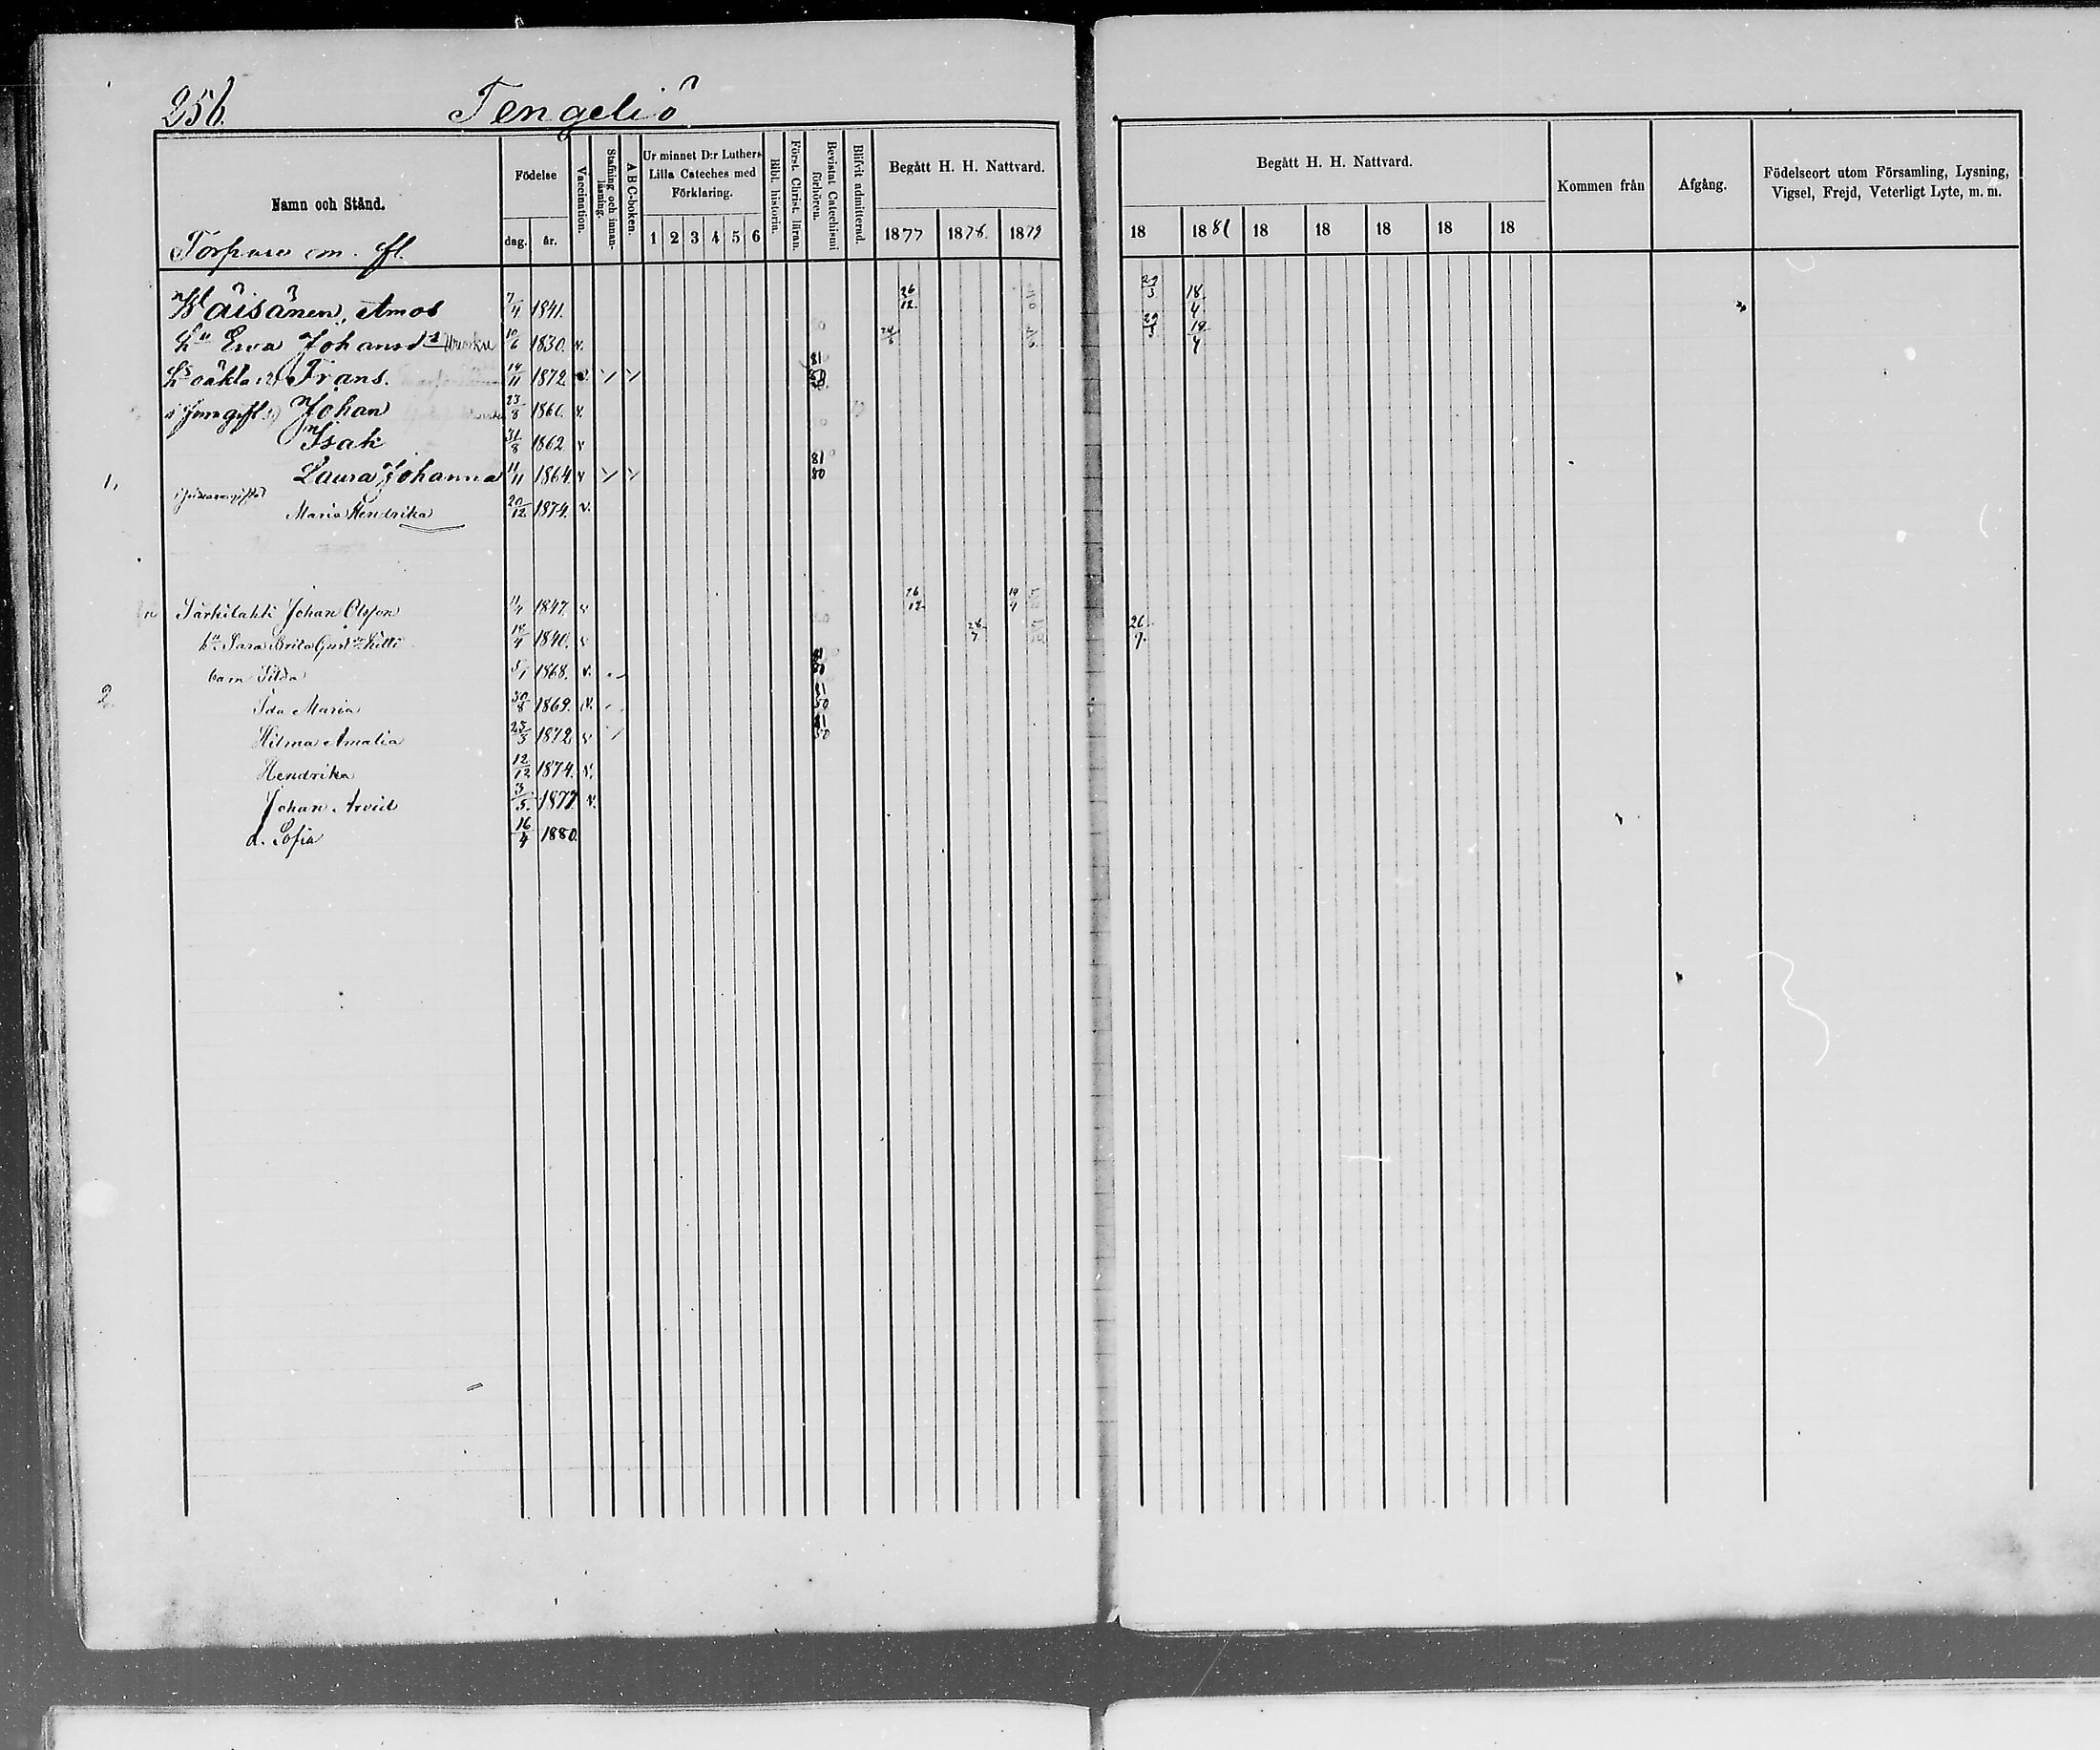 256. Tengeliö
Namn och Stånd.
Födelse
dag. år.
Vaccination.
Stafning och innan-läsning.
A B C-boken.
Ur minnet D:r Luthers
Lilla Cateches med
Förklaring.
1 2 3 4 5 6
Bibl. historia.
Först. Christ. läran.
Bevistat Catechismi förhören.
Blifvit admitterad.
Begått H. H. Nattvard.
1877 1878. 1879
Begått H. H. Nattvard.
18 1881 18 18 18 18 18
Kommen från
Afgång.
Födelseort utom Församling, Lysning,
Vigsel, Frejd, Veterligt Lyte, m. m.
Torpare m. fl.
Wäisänen, Amos 7/4 1841. 26/12 29/3 18/4
hu Ewa Johansdr 10/6 1830. v. 29/3 19/4
hs oäkta Frans. 14/11 1872 v. 81
Johan 23/8 1860. v.
Isak 31/8 1862 v
1, Laura Johanna 11/11 1864. v 81 80
Maria Hendrika 20/12 1874. v.
Särkilahti Johan Olsson 11/4 1847. v 26/12 19/4
hu Sara Brita 14/4 1840. v 26/7 26/9
barn Tilda 5/1 1868. v. 81 80
2. Ida Maria 30/8 1869. v. 81 80
Hilma Amalia 25/3 1872 v 81 80
Hendrika 12/12 1874. v.
Johan Arvid 3/5. 1877 v.
d. Sofia 16/4 1880.